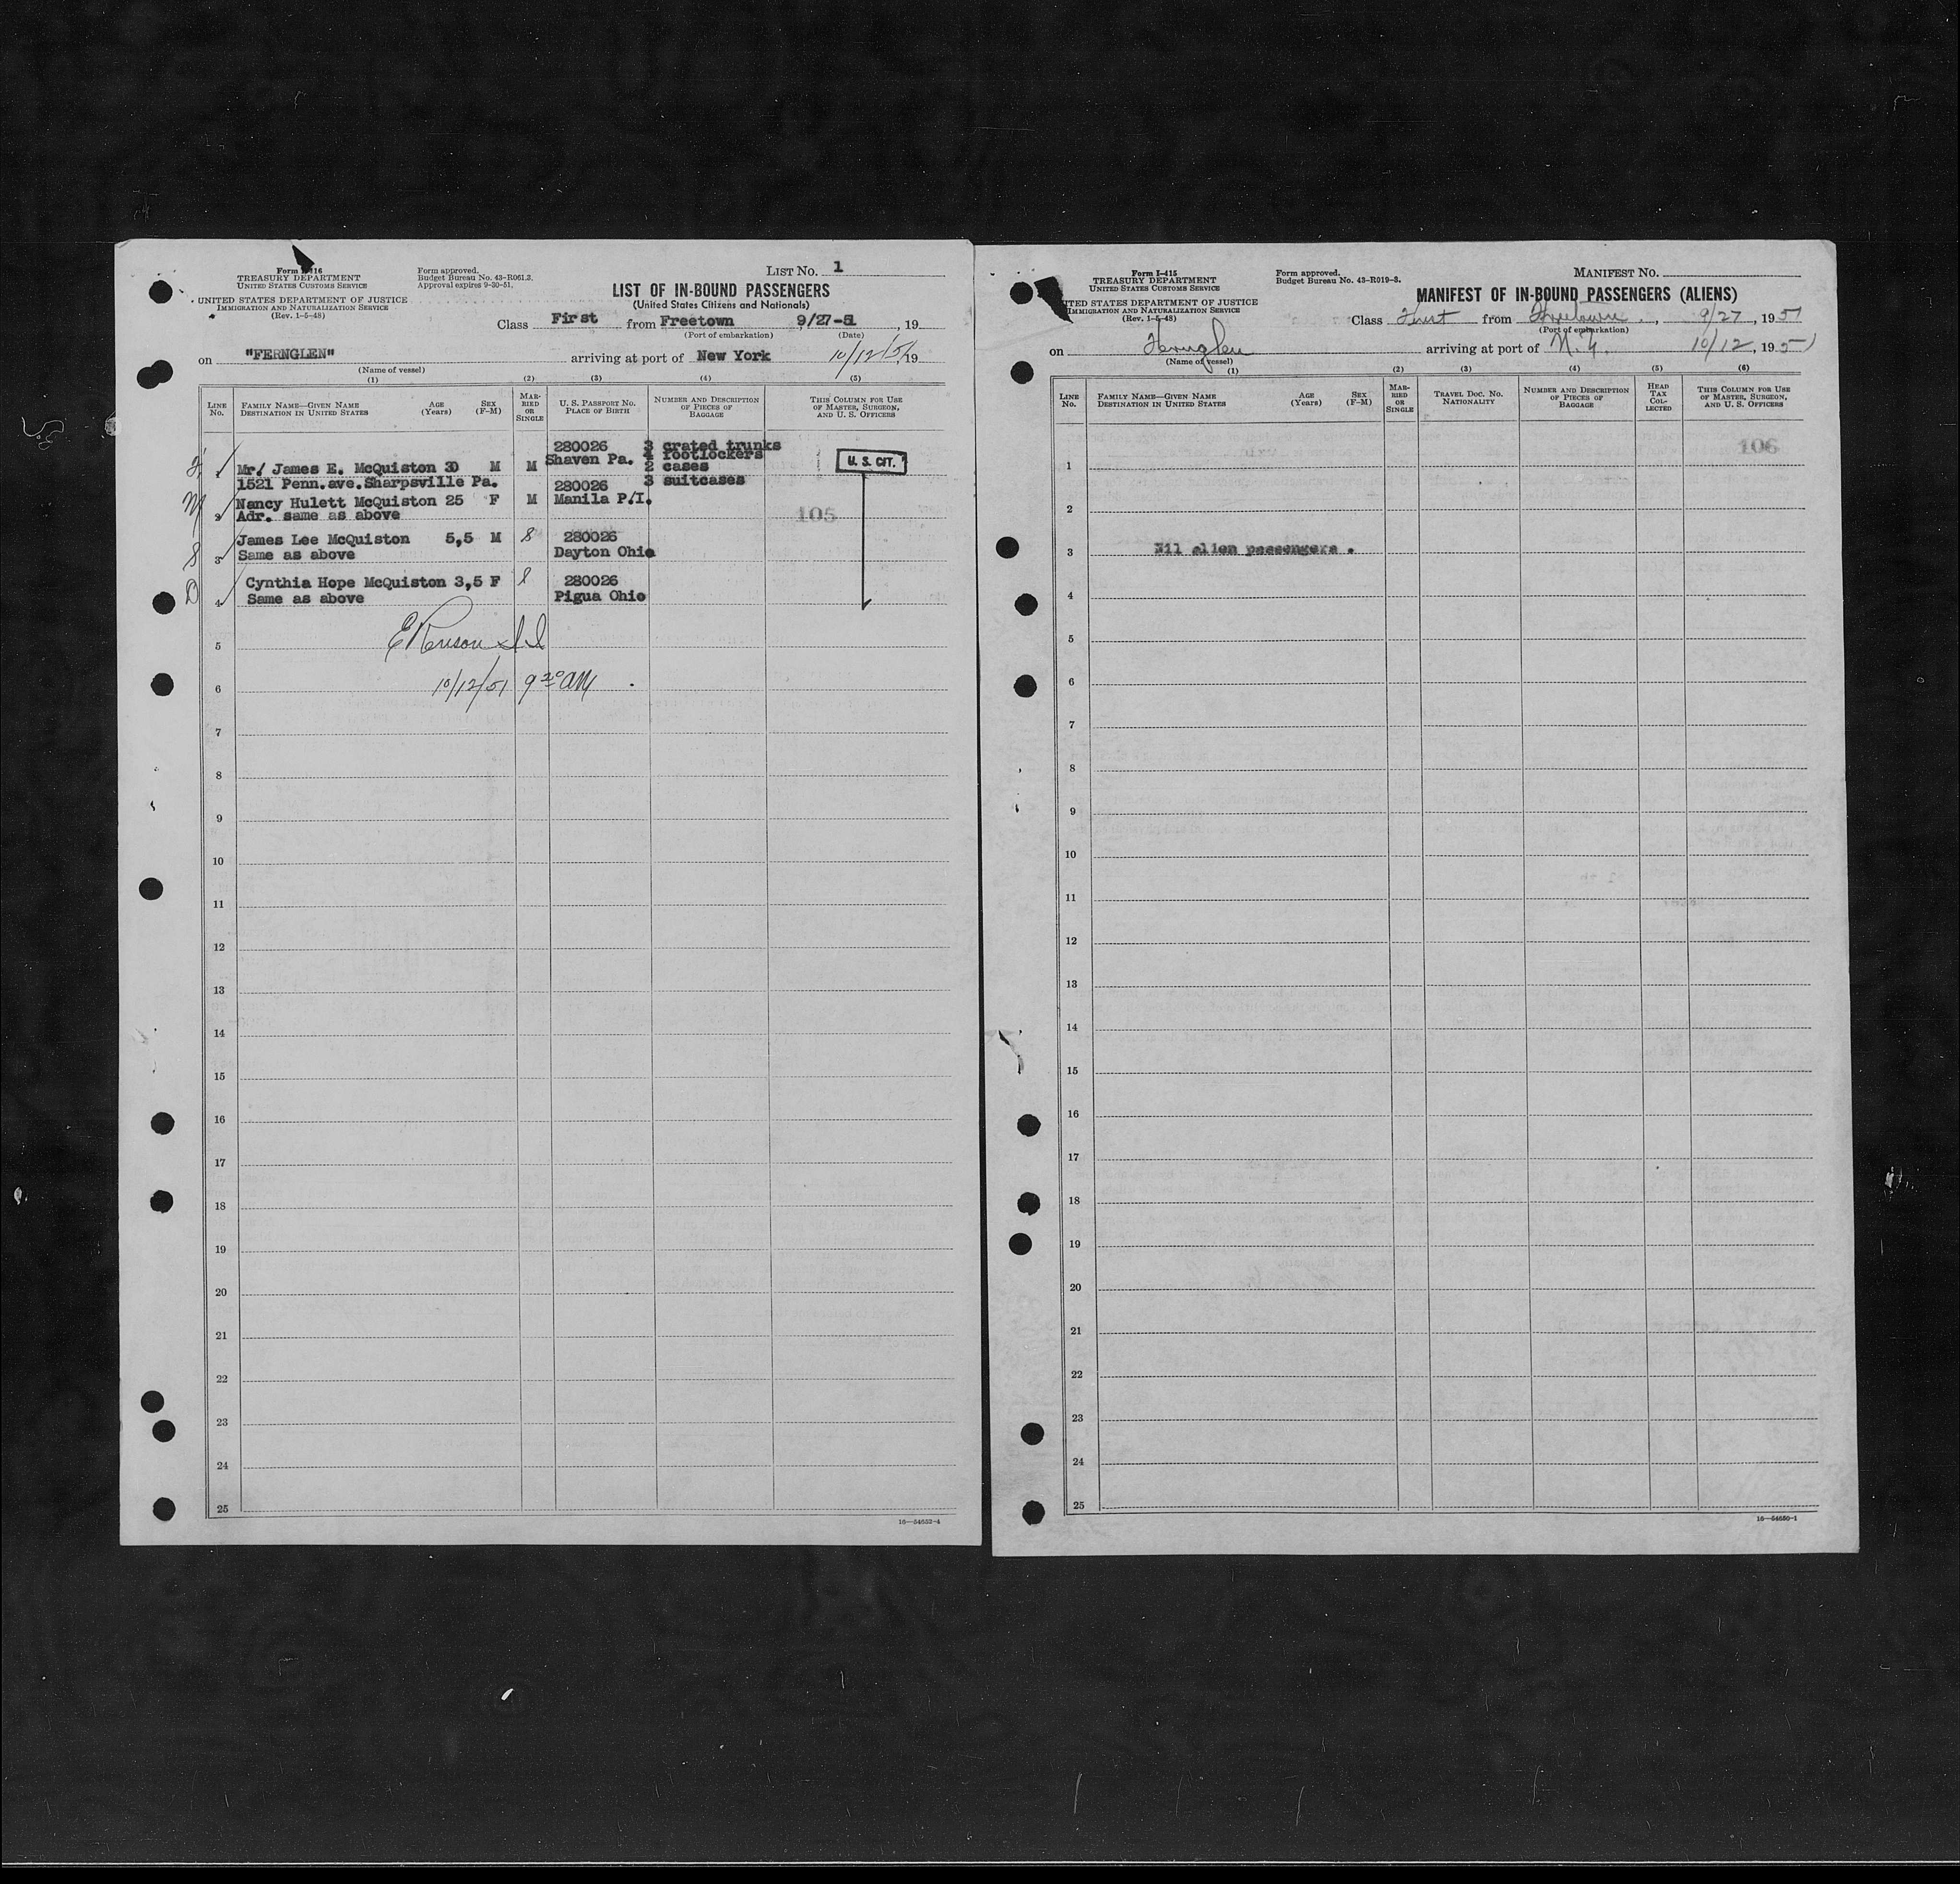 Form I-416
TREASURY DEPARTMENT
UNITED STATES CUSTOMS SERVICE
UNITED STATES DEPARTMENT OF JUSTICE
IMMIGRATION AND NATURALIZATION SERVICE
(Rev. 1-5-48)
Form approved.
Budget Bureau No. 43-R061.3.
Approval expires 9-30-51.
LIST NO. 1
LIST OF IN-BOUND PASSENGERS
(United States Citizens and Nationals)
Class First from Freetown 9/27-51, 19
(Port of embarkation) (Date)
on "FERNGLEN" arriving at port of New York 10/12/51, 19
(Name of vessel)
(1) (2) (3) (4) (5)
LINE NO. FAMILY NAME—GIVEN NAME DESTINATION IN UNITED STATES AGE (Years) SEX (F-M) MARRIED OR SINGLE U. S. PASSPORT NO. PLACE OF BIRTH NUMBER AND DESCRIPTION OF PIECES OF BAGGAGE THIS COLUMN FOR USE OF MASTER, SURGEON, AND U. S. OFFICERS
280026 3 crated trunks
Shaven Pa. footlockers
Mr/ James E. McQuiston 30 M M 2 cases U. S. CIT.
1521 Penn.ave.Sharpsville Pa. 3 suitcases
280026
M 2 Nancy Hulett McQuiston 25 F M Manila P/I.
Adr. same as above 105
S 3 James Lee McQuiston 5,5 M S 280026
Same as above Dayton Ohio
D 4 Cynthia Hope McQuiston 3,5 F S 280026
Same as above Pigua Ohio
5
6 10/12/51 9 20 AM
7
8
9
10
11
12
13
14
15
16
17
18
19
20
21
22
23
24
25
16—54652-4
Form I-415
TREASURY DEPARTMENT
UNITED STATES CUSTOMS SERVICE
UNITED STATES DEPARTMENT OF JUSTICE
IMMIGRATION AND NATURALIZATION SERVICE
(Rev. 1-5-48)
Form approved.
Budget Bureau No. 43-R019-3.
MANIFEST NO.
MANIFEST OF IN-BOUND PASSENGERS (ALIENS)
Class First from Freetown, 9/27, 1951
(Port of embarkation)
on Fernglen arriving at port of N.Y. 10/12, 1951
(Name of vessel)
(1) (2) (3) (4) (5) (6)
LINE NO. FAMILY NAME—GIVEN NAME DESTINATION IN UNITED STATES AGE (Years) SEX (F-M) MARRIED OR SINGLE TRAVEL DOC. NO. NATIONALITY NUMBER AND DESCRIPTION OF PIECES OF BAGGAGE HEAD TAX COLLECTED THIS COLUMN FOR USE OF MASTER, SURGEON, AND U. S. OFFICERS
106
1
2
3 Nil alien passengers .
4
5
6
7
8
9
10
11
12
13
14
15
16
17
18
19
20
21
22
23
24
25
16—54650-1